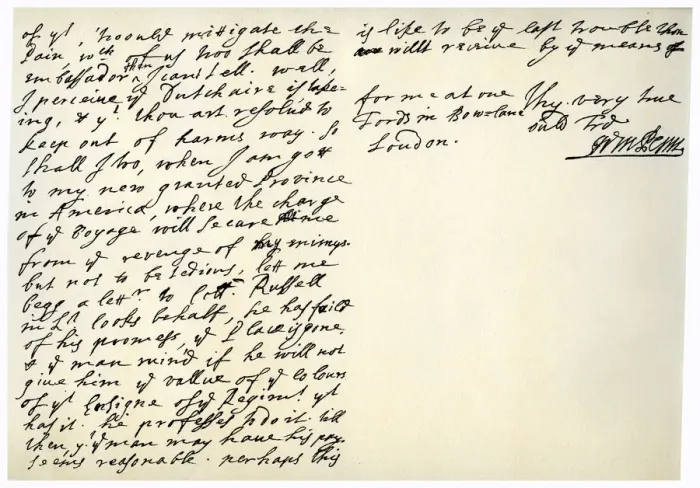 of yt, would mittigate the
Pain wch of us two shall be
embassador then I cant tell. well,
I perceive ye Dutch aire is
ing, & yt thou art resolv'd to
keep out of harms way. So
shall I two, when I am gott
to my new granted Province
in America, where the charge
of ye Voyage will secure me
from ye revenge of my
but not to be tedious, lett me
begg a lettr to Russell
in looks behalf, he has faild
of his promess, ye place is gone,
& ye man if he will not
give him ye vallue of ye colours
of yt Ensigne of ye Regimt yt
has it. he professes to do it. till
then, yt ye man may have his pay
seems reasonable. perhaps this
is like to be ye last trouble thou
willt receive by ye means of
Thy very true
ould Frd
WmPenn
for me at one
Fords in Bow=lane
London.